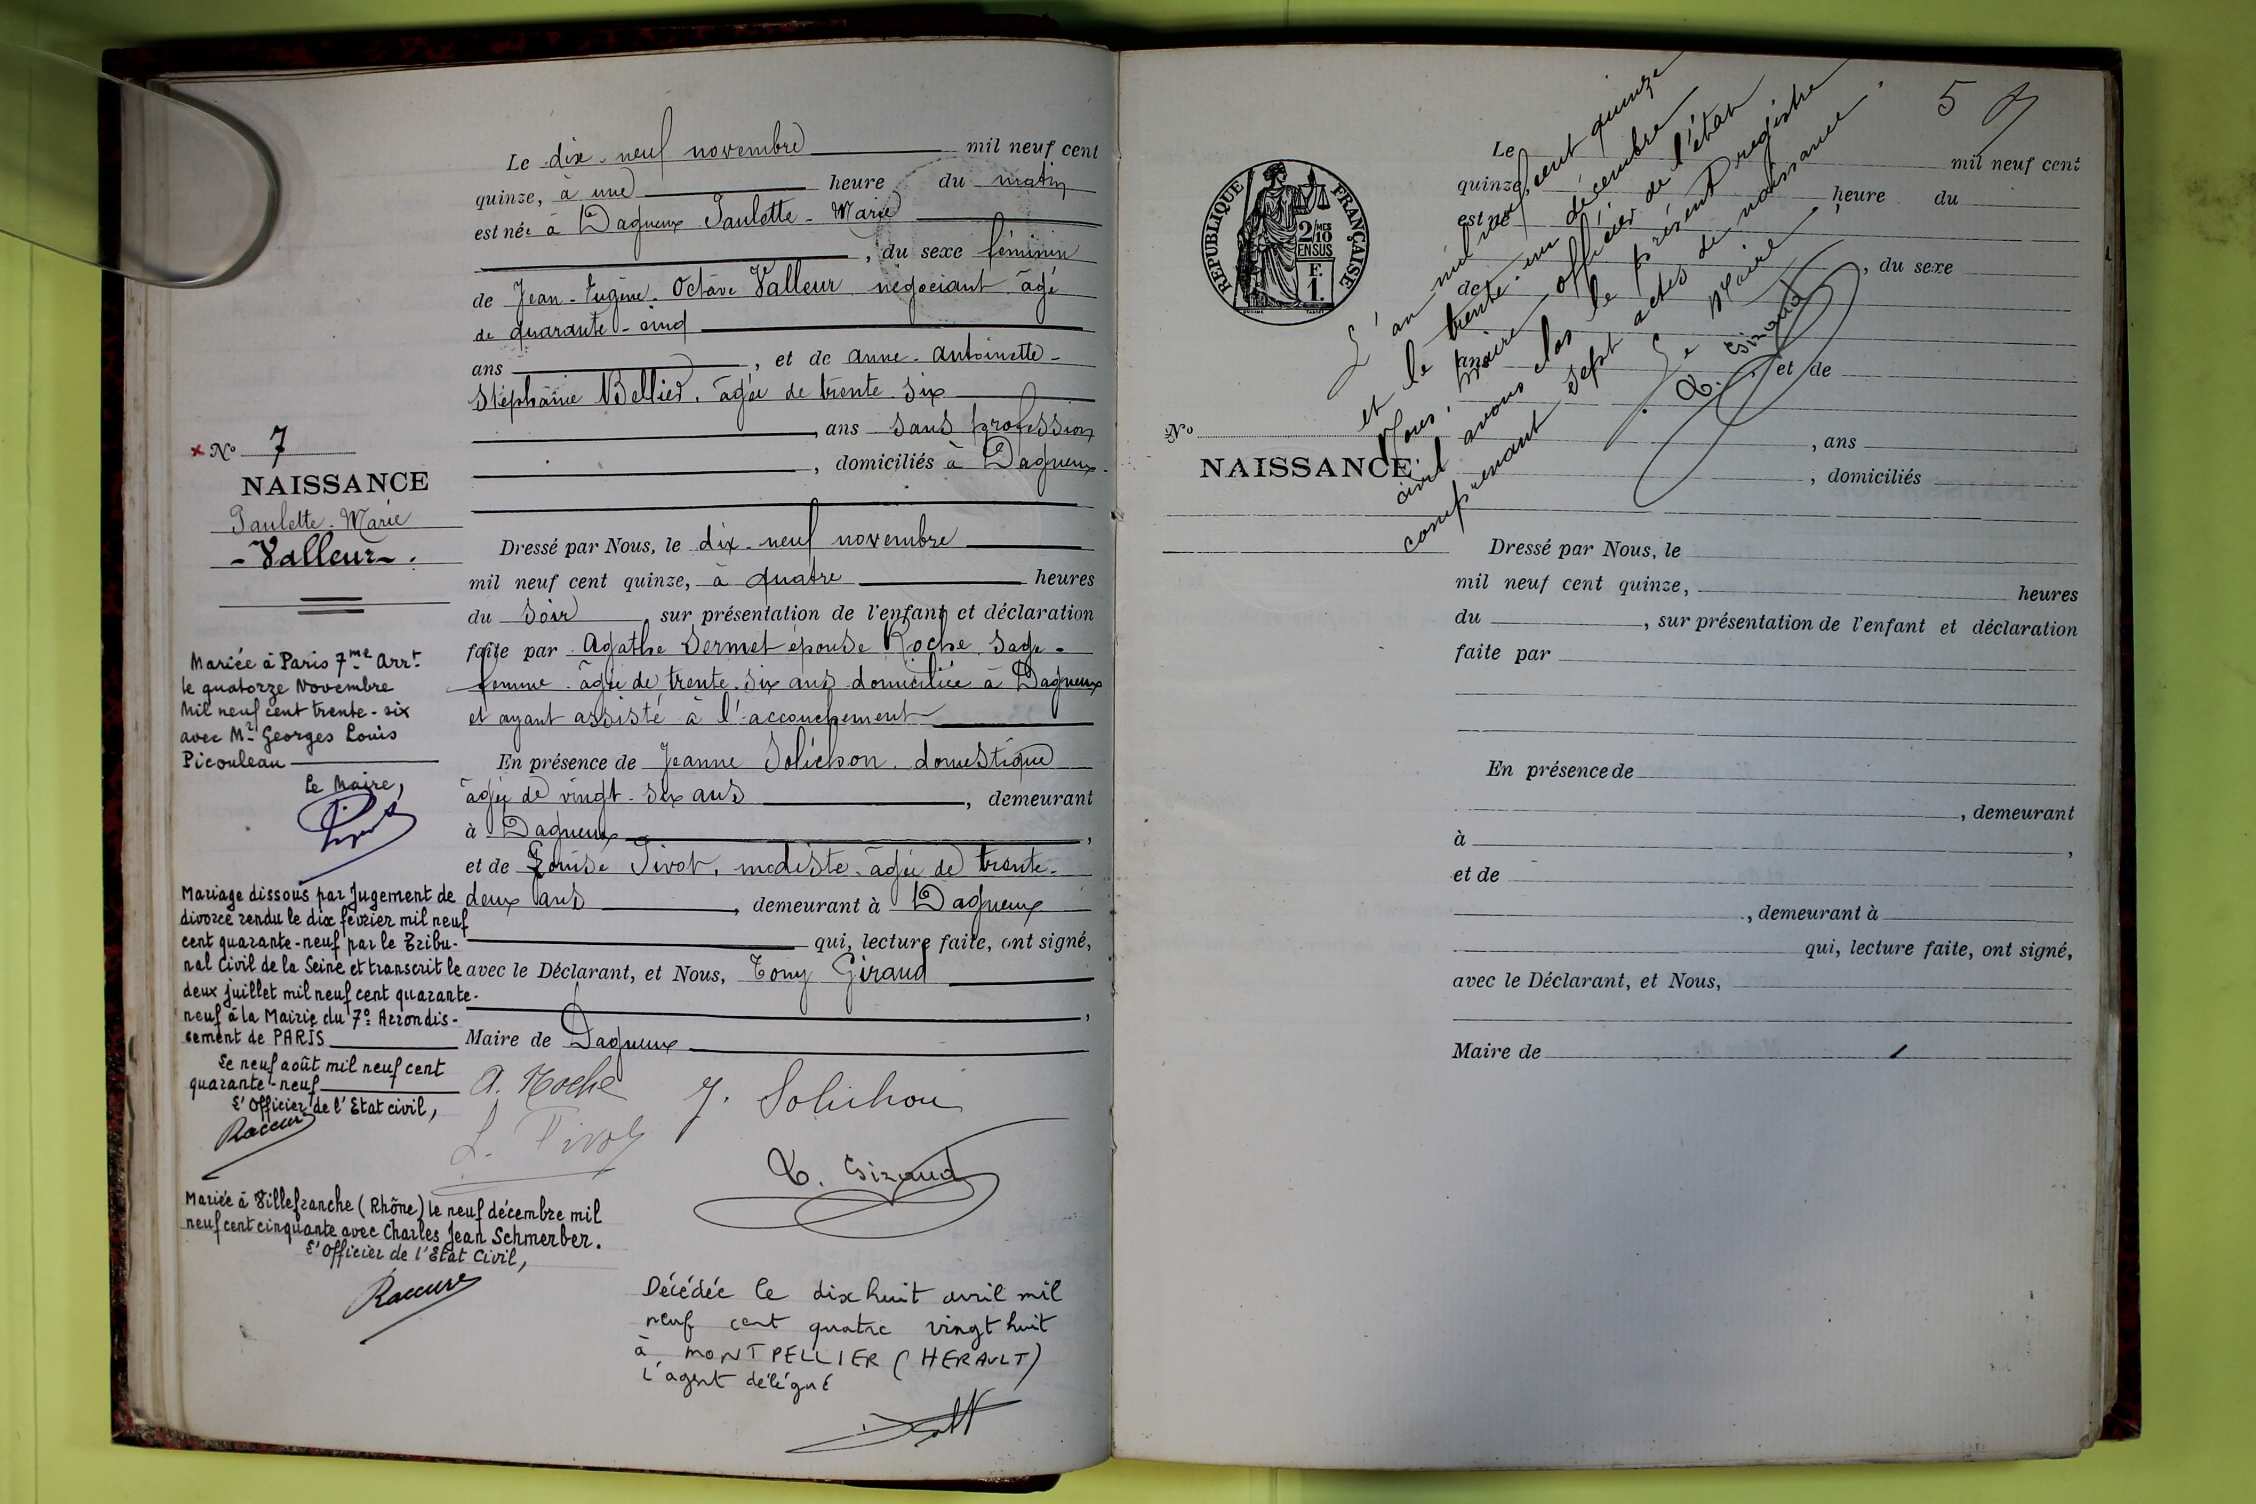 Le dix-neuf novembre mil neuf cent
quinze, à une heure du matin
est née à Dagneux Paulette-Marie
, du sexe féminin
de Jean-Eugène-Octave Valleur négociant âgé
de quarante-cinq
ans , et de anne-antoinette-
Stéphanie Bellier, âgée de trente-six
, ans sans profession
, domiciliés à Dagneux.
Dressé par Nous, le dix-neuf novembre
mil neuf cent quinze, à quatre heures
du soir sur présentation de l'enfant et déclaration
faite par Agathe Sermet épouse Roche sage-
femme âgée de trente-six ans domiciliée à Dagneux
et ayant assisté à l'accouchement
En présence de Jeanne Solichon, domestique
âgée de vingt-six ans , demeurant
à Dagneux ,
et de Louise Pivot, modiste âgée de trente-
deux ans , demeurant à Dagneux
qui, lecture faite, ont signé,
avec le Déclarant, et Nous, Tony Giraud
,
Maire de Dagneux
A. Roche J. Solichon
L. Pivot
T. Giraud
× No 7
NAISSANCE
Paulette-Marie
-Valleur-.
Mariée à Paris 7me Arrt
le quatorze Novembre
Mil neuf cent trente-six
avec Mr Georges Louis
Picouleau
Le Maire,
Mariage dissous par Jugement de
divorce rendu le dix février mil neuf
cent quarante-neuf par le Tribu-
nal Civil de la Seine et transcrit le
deux juillet mil neuf cent quarante-
neuf à la Mairie du 7e Arrondis-
sement de PARIS
Le neuf août mil neuf cent
quarante-neuf
L'Officier de l'Etat civil,
Mariée à Villefranche (Rhône) le neuf décembre mil
neuf cent cinquante avec Charles Jean Schmerber.
L'Officier de l'Etat Civil,
Décédée le dix huit avril mil
neuf cent quatre vingt huit
à MONTPELLIER (HERAULT)
L'agent délégué
5
RÉPUBLIQUE FRANÇAISE
2/10MES
EN SUS
F.
1.
L'an mil neuf cent quinze
et le trente-un décembre
Nous, Maire officier de l'état
civil avons clos le présent registre
comprenant sept actes de naissance.
Le Maire,
T. Giraud
No
NAISSANCE.
Le mil neuf cent
quinze, heure du
est né
, du sexe
de
ans , et de
, ans
, domiciliés
Dressé par Nous, le
mil neuf cent quinze, heures
du , sur présentation de l'enfant et déclaration
faite par
En présence de
, demeurant
à ,
et de
, demeurant à
qui, lecture faite, ont signé,
avec le Déclarant, et Nous,
Maire de